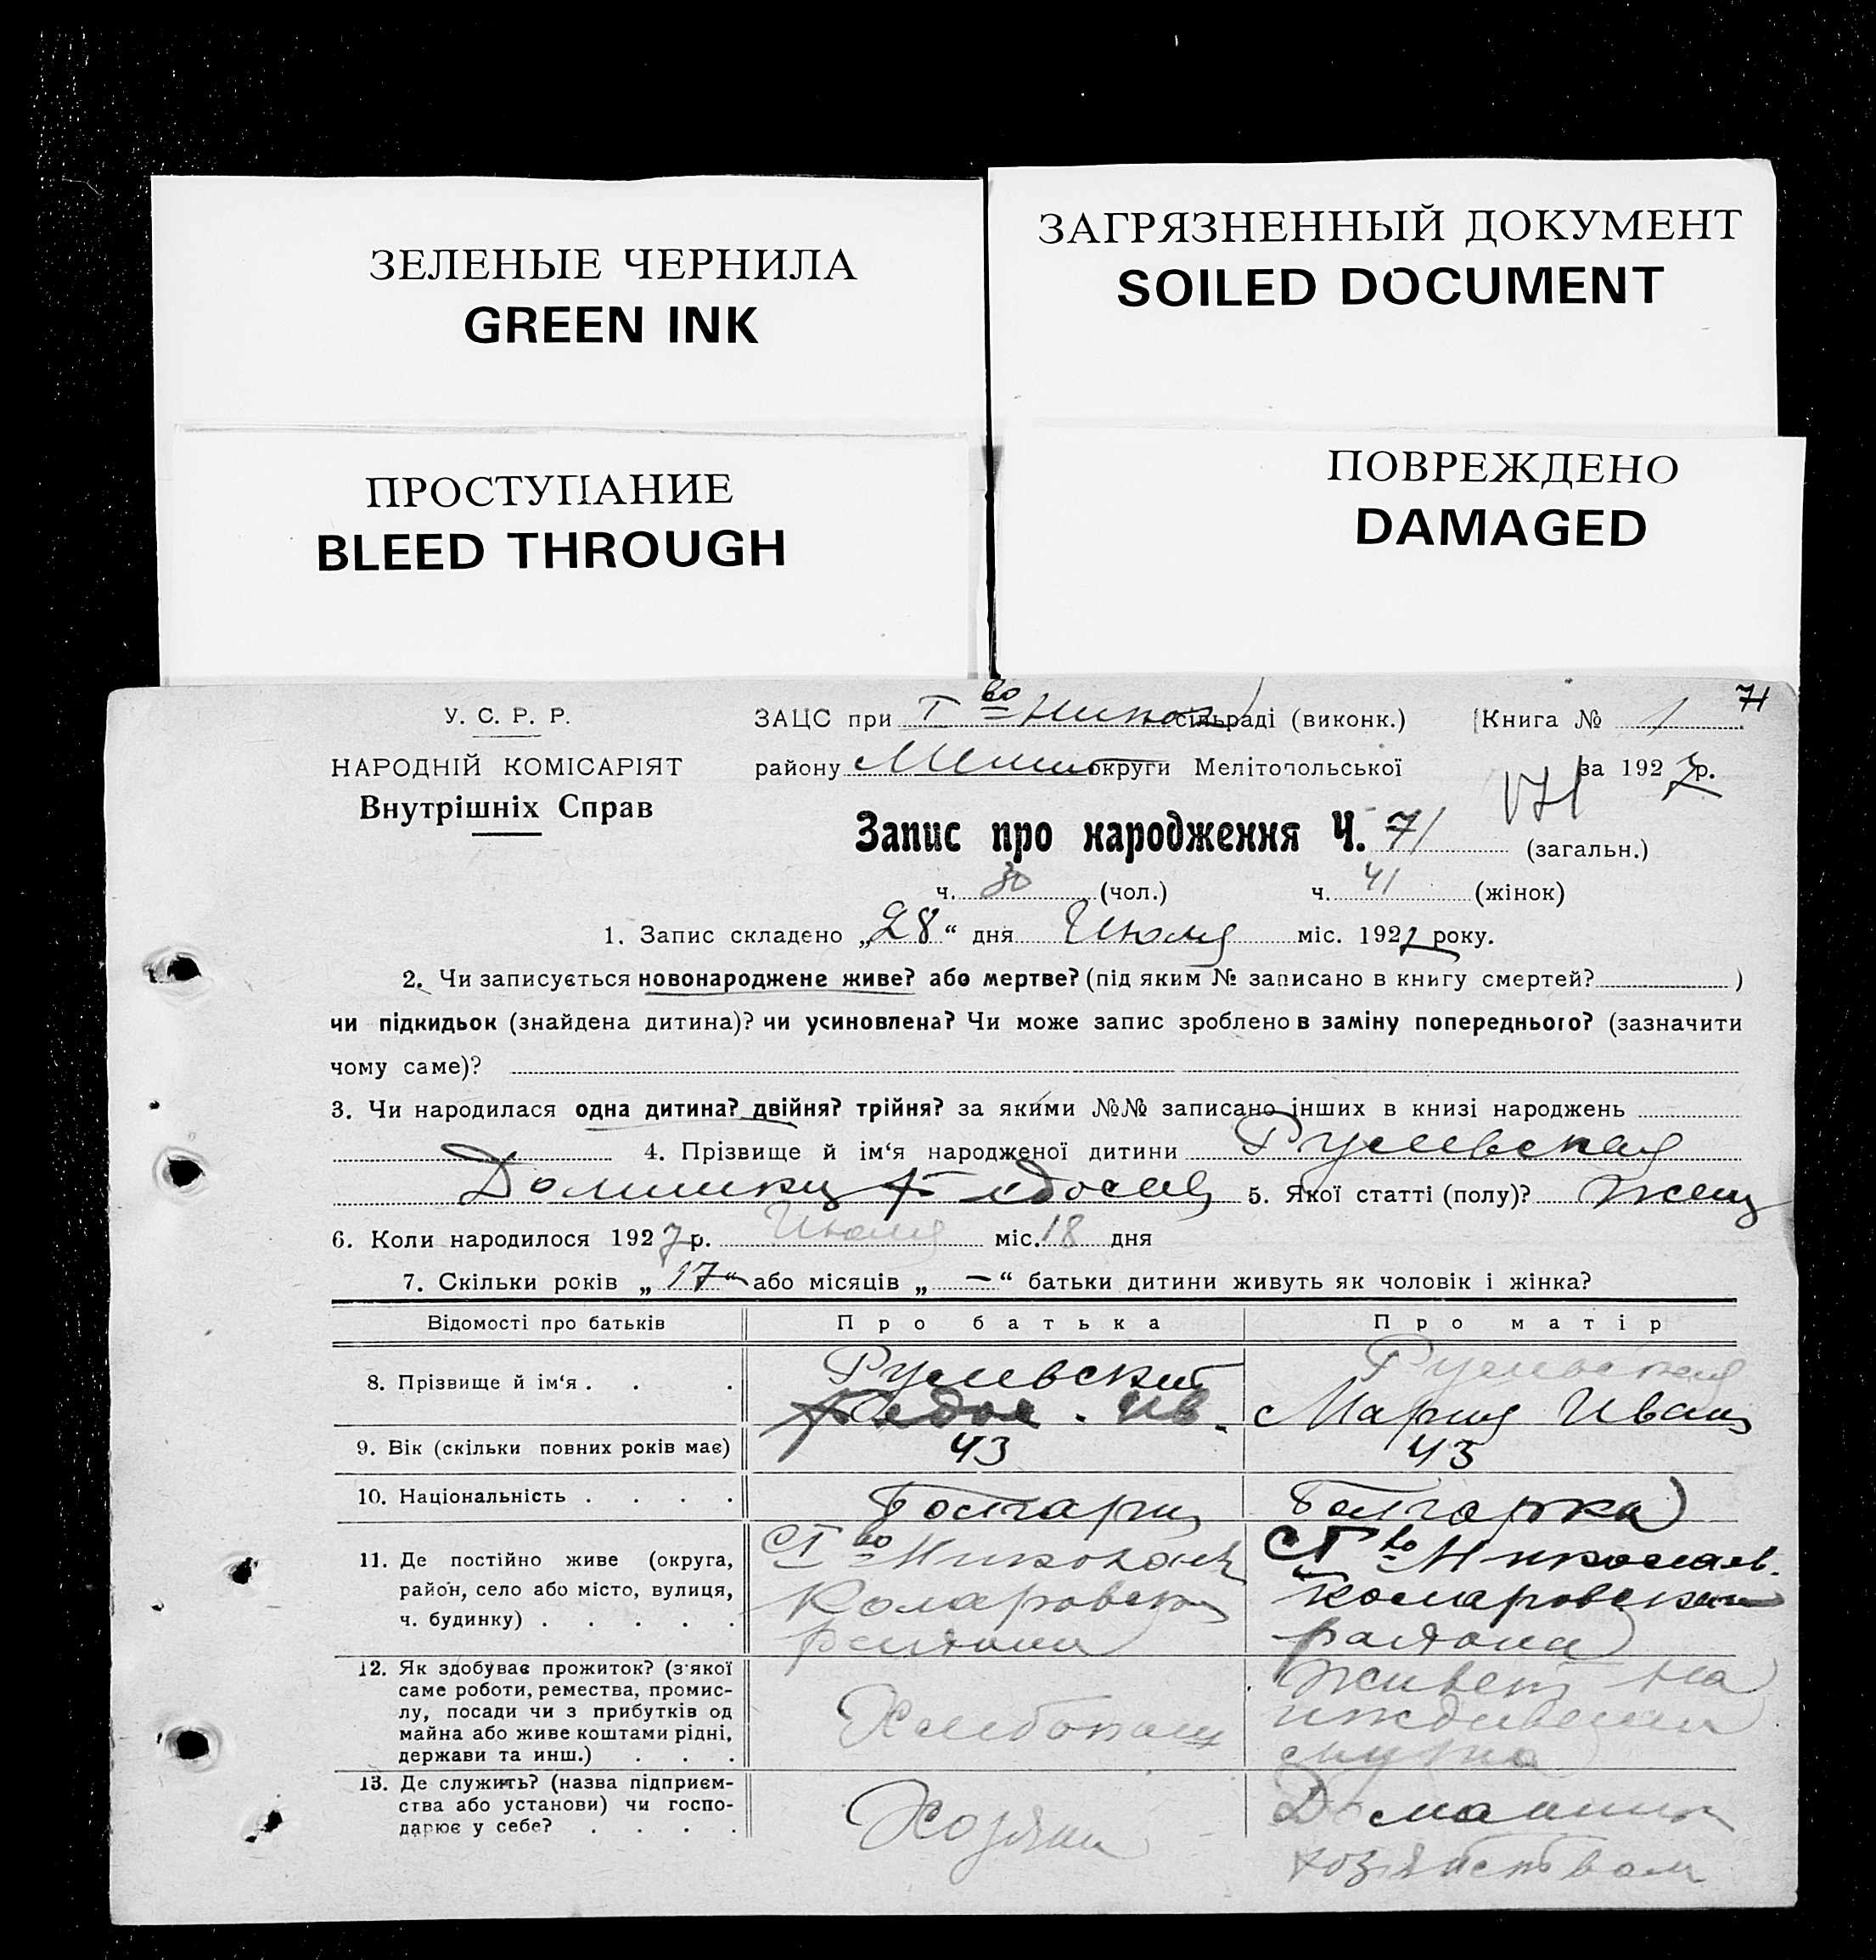 ЗЕЛЕНЫЕ ЧЕРНИЛА
GREEN INK
ЗАГРЯЗНЕННЫЙ ДОКУМЕНТ
SOILED DOCUMENT
ПРОСТУПАНИЕ
BLEED THROUGH
ПОВРЕЖДЕНО
DAMAGED
71
У. С. Р. Р.
НАРОДНІЙ КОМІСАРІЯТ
Внутрішніх Справ
ЗАЦС при сільраді (виконк.) Книга № 1
району округи Мелітопольської за 1927 р.
Запис про народження Ч. 71 (загальн.)
ч. 30 (чол.) ч. 41 (жінок)
1. Запис складено „28“ дня Июля міс. 1927 року.
2. Чи записується новонароджене живе? або мертве? (під яким № записано в книгу смертей? )
чи підкидьок (знайдена дитина)? чи усиновлена? Чи може запис зроблено в заміну попереднього? (зазначити
чому саме)?
3. Чи народилася одна дитина? двійня? трійня? за якими №№ записано інших в книзі народжень
4. Прізвище й ім‘я народженої дитини
5. Якої статті (полу)? жен
6. Коли народилося 1927 р. Июля міс. 18 дня
7. Скільки років „17“ або місяців „—“ батьки дитини живуть як чоловік і жінка?
Відомості про батьків Про батька Про матір
8. Прізвище й ім‘я . . .
Мария Иван
9. Вік (скільки повних років має) 43 43
10. Національність . . . . Болгарин Болгарка
11. Де постійно живе (округа,
район, село або місто, вулиця,
ч. будинку) . . . . .
района района
12. Як здобуває прожиток? (з‘якої
саме роботи, ремества, промис-
лу, посади чи з прибутків од
майна або живе коштами рідні,
держави та инш.) . . .
Хлебопаш
Живет на
иждивении
мужа
13. Де служить? (назва підприєм-
ства або установи) чи госпо-
дарює у себе? . . . .
Хозяин
Домашним
хозяйством